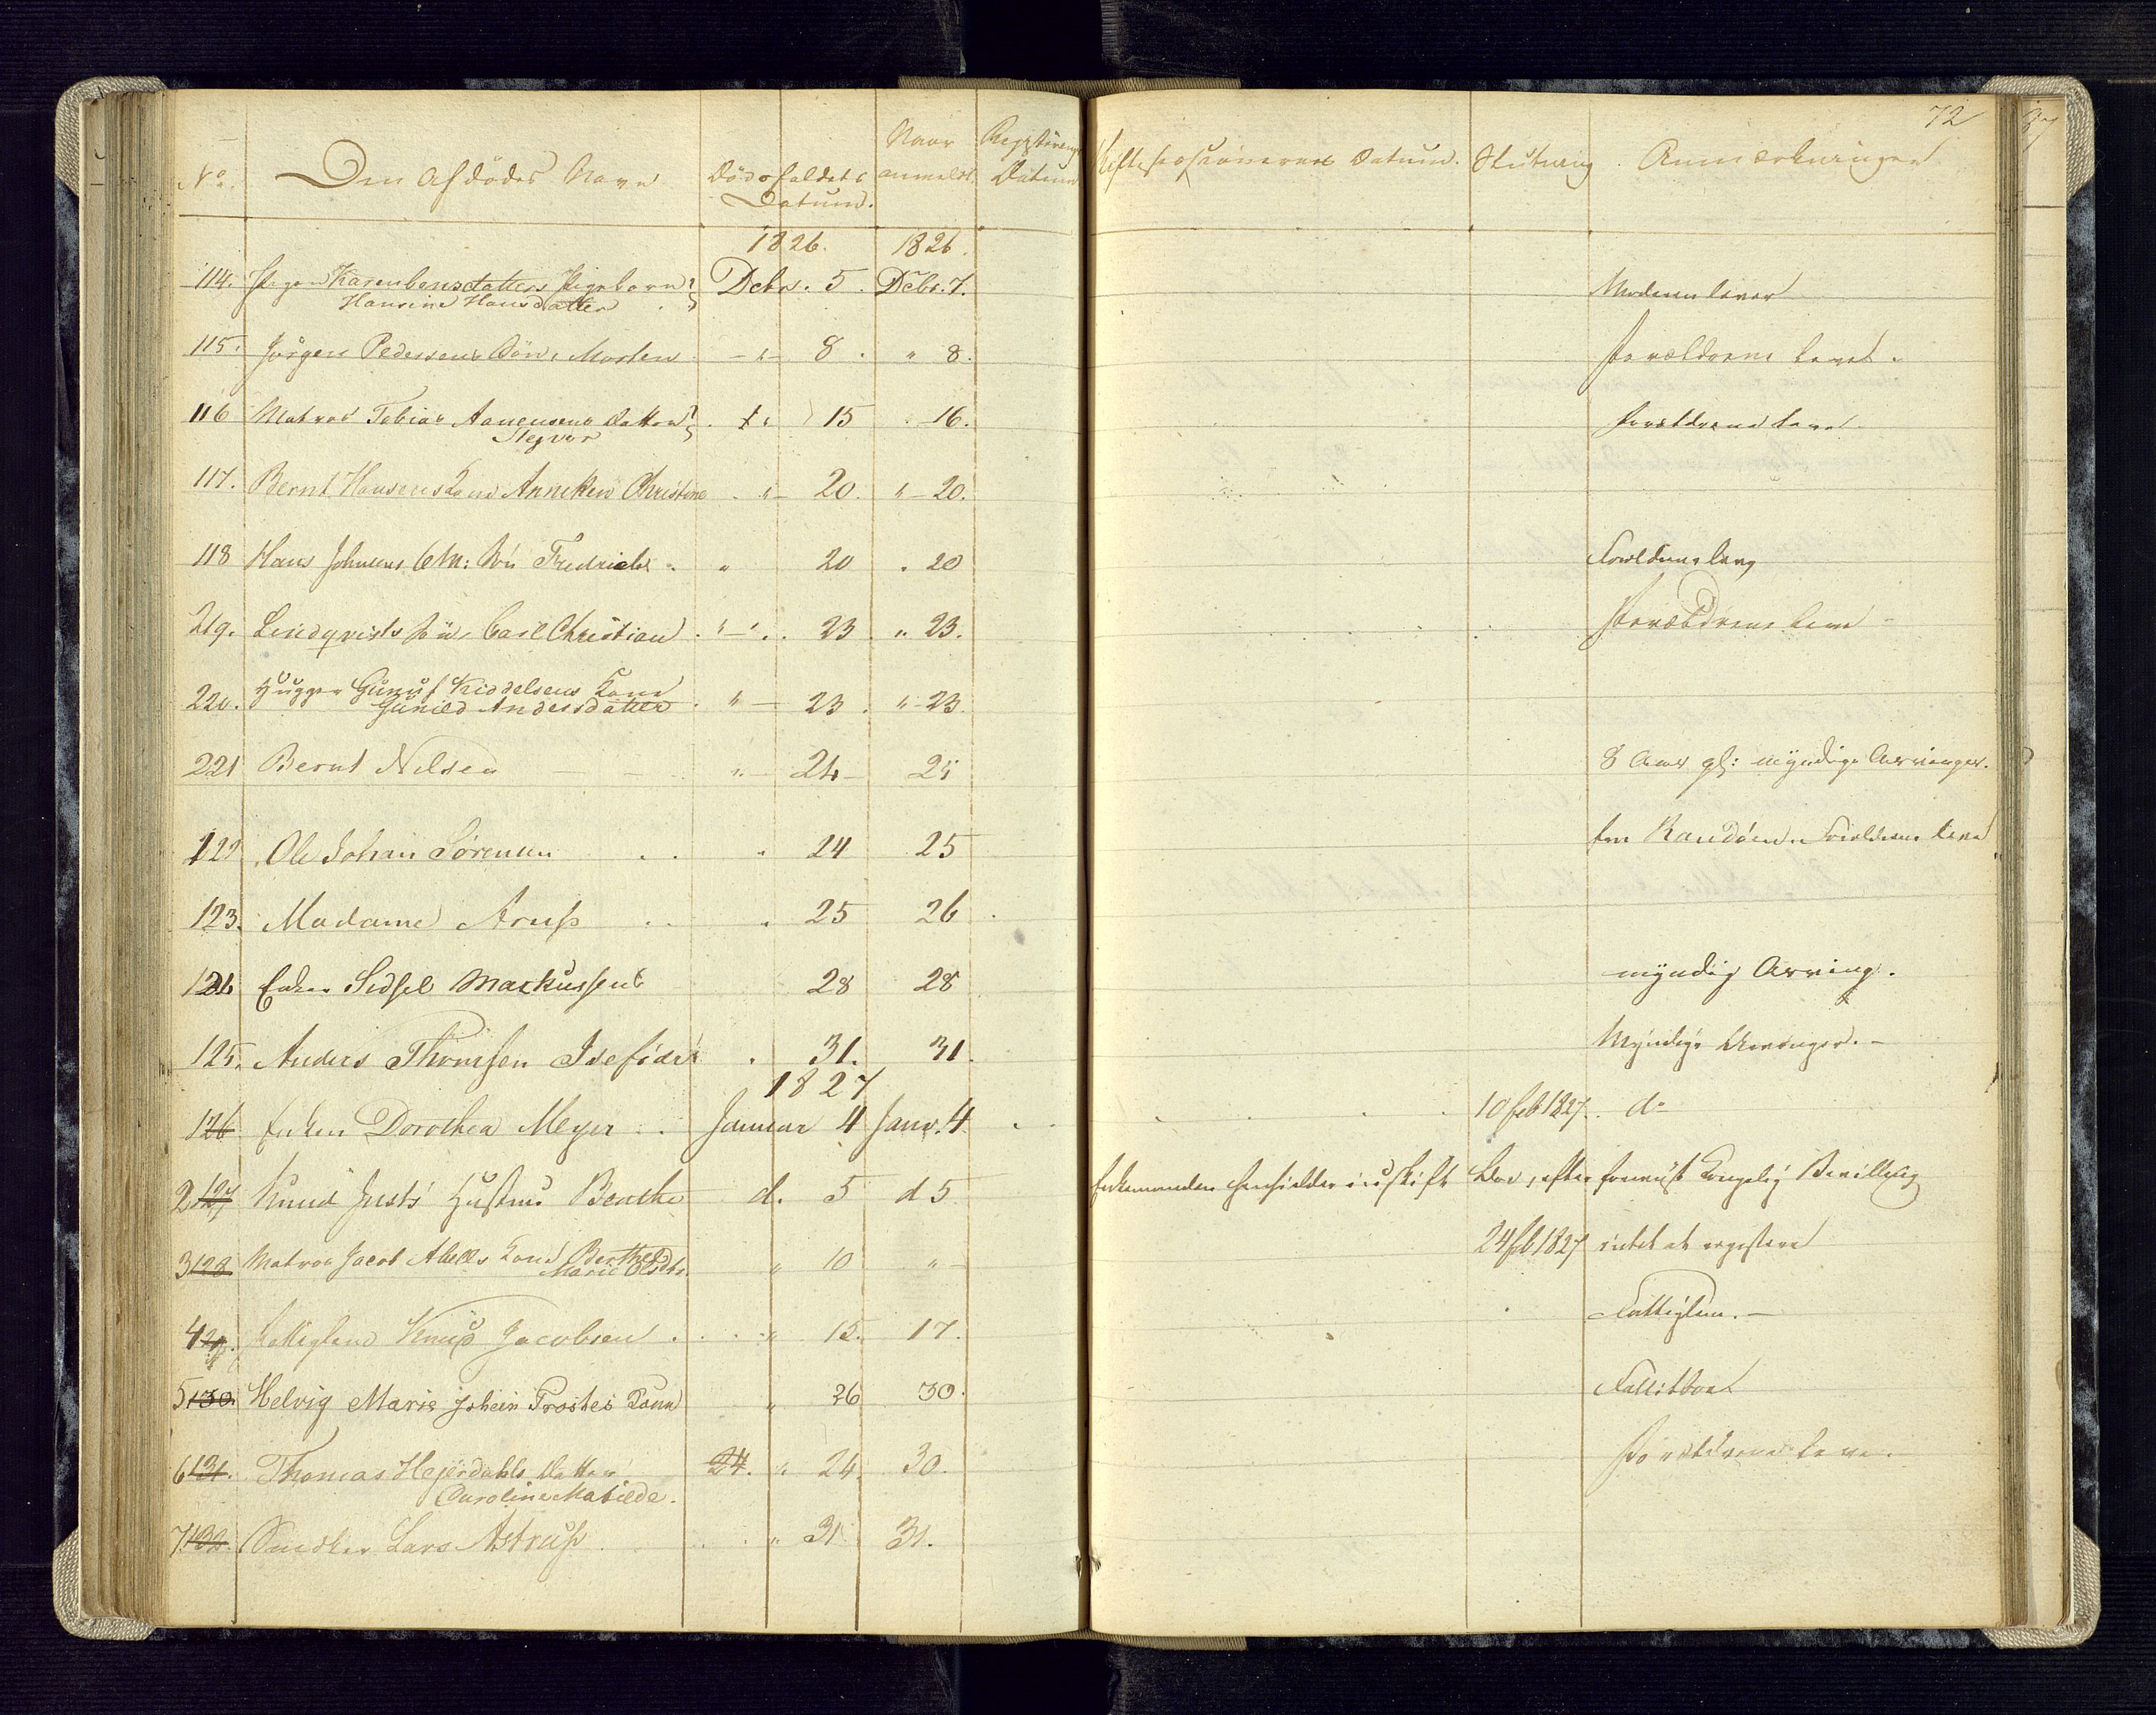 72
No. Den Afdödes Navn Dödsfaldets Datum. Naar anmeldt Registrerings Datum Skiftesessionernes Datum. Slutning Anmærkninger
1826. 1826.
114. Pigen Karen bensdatters Pigebarn Hansine Hansdatter Debr. 5. Debr. 7. Moderen lever
115. Jörgen Pedersens Sön, Morten - " - 8. " 8. Forældrene leve.
116 Matros Tobias Aanensens Datter Segvor " 15 16. Forældrene leve
117. Bernt Hansens Kone Anneken Christine " - 20. " - 20.
118 Hans Johnsens Sön Fredrich " 20 " 20 Forældrene leve
219. Lindqvists Sön, Carl Christian " - " 23 " 23. Forældrene leve
220. Hugger Gunuf Kiddelsens Kone Gunild Andersdatter " - 23. " - 23.
221 Bernt Nilsen " - 24 - 25 8 Aar gl: myndige Arvinger.
122 Ole Johan Sörensen " 24 25 Forældrene leve
123. Madame Arup " 25 26
124 Enken Sidsel Markussens 28 28 myndig Arving.
125. Anders Thomsen Idefödr " 31. 31. Myndige Arvinger. -
1827
126 Enken Dorothea Meyer Januar 4 Janr. 4 10 feb 1827. do
2 127 Knud Justs Hustrue Benthe d. 5 d 5 Enkemanden hensidder i uskift Boe, efter Kongelig Bevilling
3 128 Matros Jacob Abells Kone Berthe Marie Olsdtr. " 10 " - 24 feb 1827 intet at registrere
4 129. Fattiglem Knud Jacobsen " 15. 17. Fattiglem. -
5 130. Helvig Marie Johein Frostes Kone " 26 30. Fallitboe
6 131. Thomas Hejerdahls Datter Caroline Matilde. 24. " 24. 30. Forældrene leve.
7 132. Snedker Lars Astrup " 31 31.